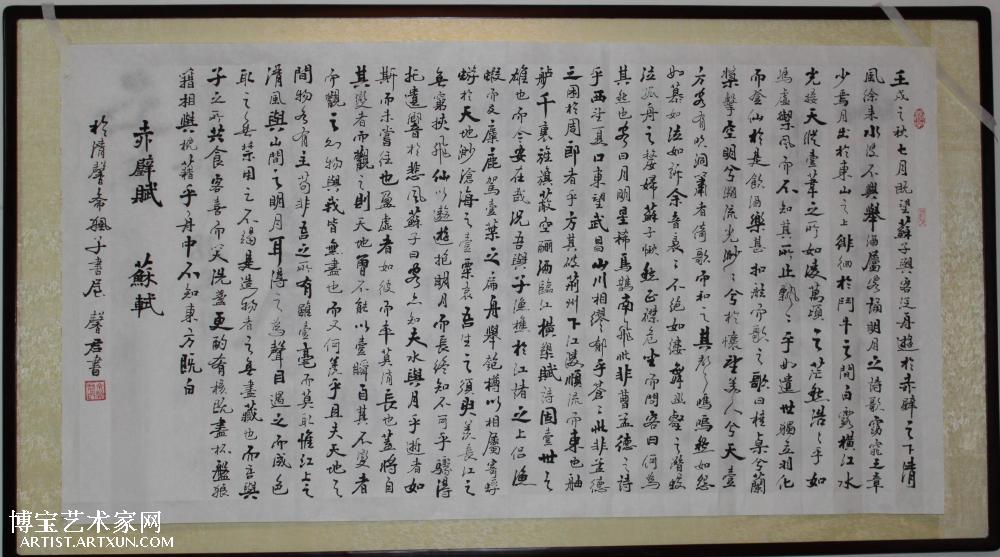 壬戌之秋七月既望蘇子與客泛舟遊於赤壁之下清
風徐来水波不興舉酒屬客誦明月之詩歌窈窕之章
少焉月出於東山之上徘徊於鬥牛之間白露橫江水
光接天縱壹葦之所如凌萬頃之茫然浩浩乎如
馮虛禦風而不知其所止飄飄乎如遺世獨立羽化
而登仙於是飲酒樂甚扣舷而歌之歌曰桂棹兮蘭
槳擊空明兮溯流光渺渺兮於懷望美人兮天壹
方客有吹洞簫者倚歌而和之其聲嗚嗚然如怨
如慕如泣如訴余音裊裊不絕如縷舞幽壑之潛蛟
泣孤舟之嫠婦蘇子愀然正襟危坐而問客曰何為
其然也客曰月明星稀烏鵲南飛此非曹孟德之詩
乎西望夏口東望武昌山川相繆郁乎蒼蒼此非孟德
之困於周郎者乎方其破荊州下江陵順流而東也舳
艫千裏旌旗蔽空釃酒臨江橫槊賦詩固壹世之
雄也而今安在哉況吾與子漁樵於江渚之上侶漁
蝦而友麋鹿駕壹葉之扁舟舉匏樽以相屬寄蜉
蝣於天地渺滄海之壹粟哀吾生之須臾羨長江之
無窮挾飛仙以遨遊抱明月而長終知不可乎驟得
托遺響於悲風蘇子曰客亦知夫水與月乎逝者如
斯而未嘗往也盈虛者如彼而卒莫消長也蓋將自
其變者而觀之則天地曾不能以壹瞬自其不變者
而觀之則物與我皆無盡也而又何羨乎且夫天地之
間物各有主茍非吾之所有雖壹毫而莫取惟江上之
清風與山間之明月耳得之為聲目遇之而成色
取之無禁用之不竭是造物者之無盡藏也而吾與
子之所共食客喜而笑洗盞更酌肴核既盡杯盤狼
籍相與枕藉乎舟中不知東方既白
赤壁賦 蘇軾
於清馨希 子書屋 馨君書
博宝艺术家网
ARTIST.ARTXUN.COM